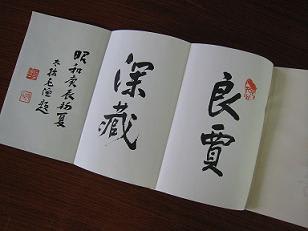 良賈
深藏
昭和庚辰初夏
題